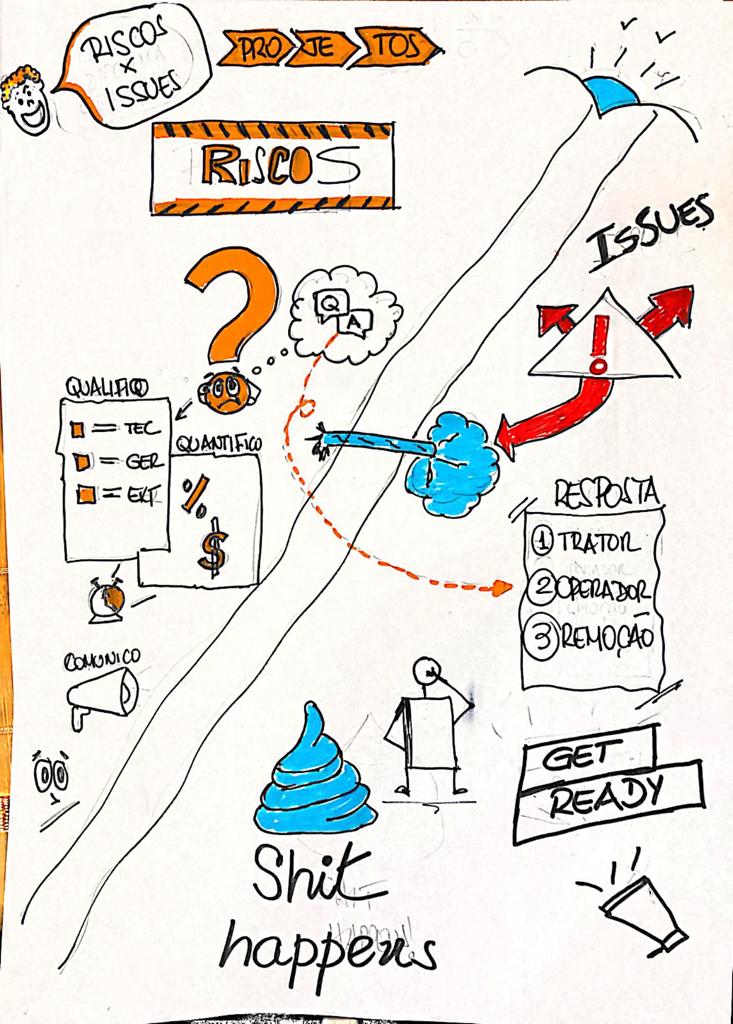 RISCOS
X
ISSUES
PRO JE TOS
RISCOS
ISSUES
Q
A
QUALIFICO
= TEC
= GER
= EXT
QUANTIFICO
%
$
!
RESPOSTA
1 TRATOR
2 OPERADOR
3 REMOÇÃO
COMUNICO
GET
READY
Shit
happens